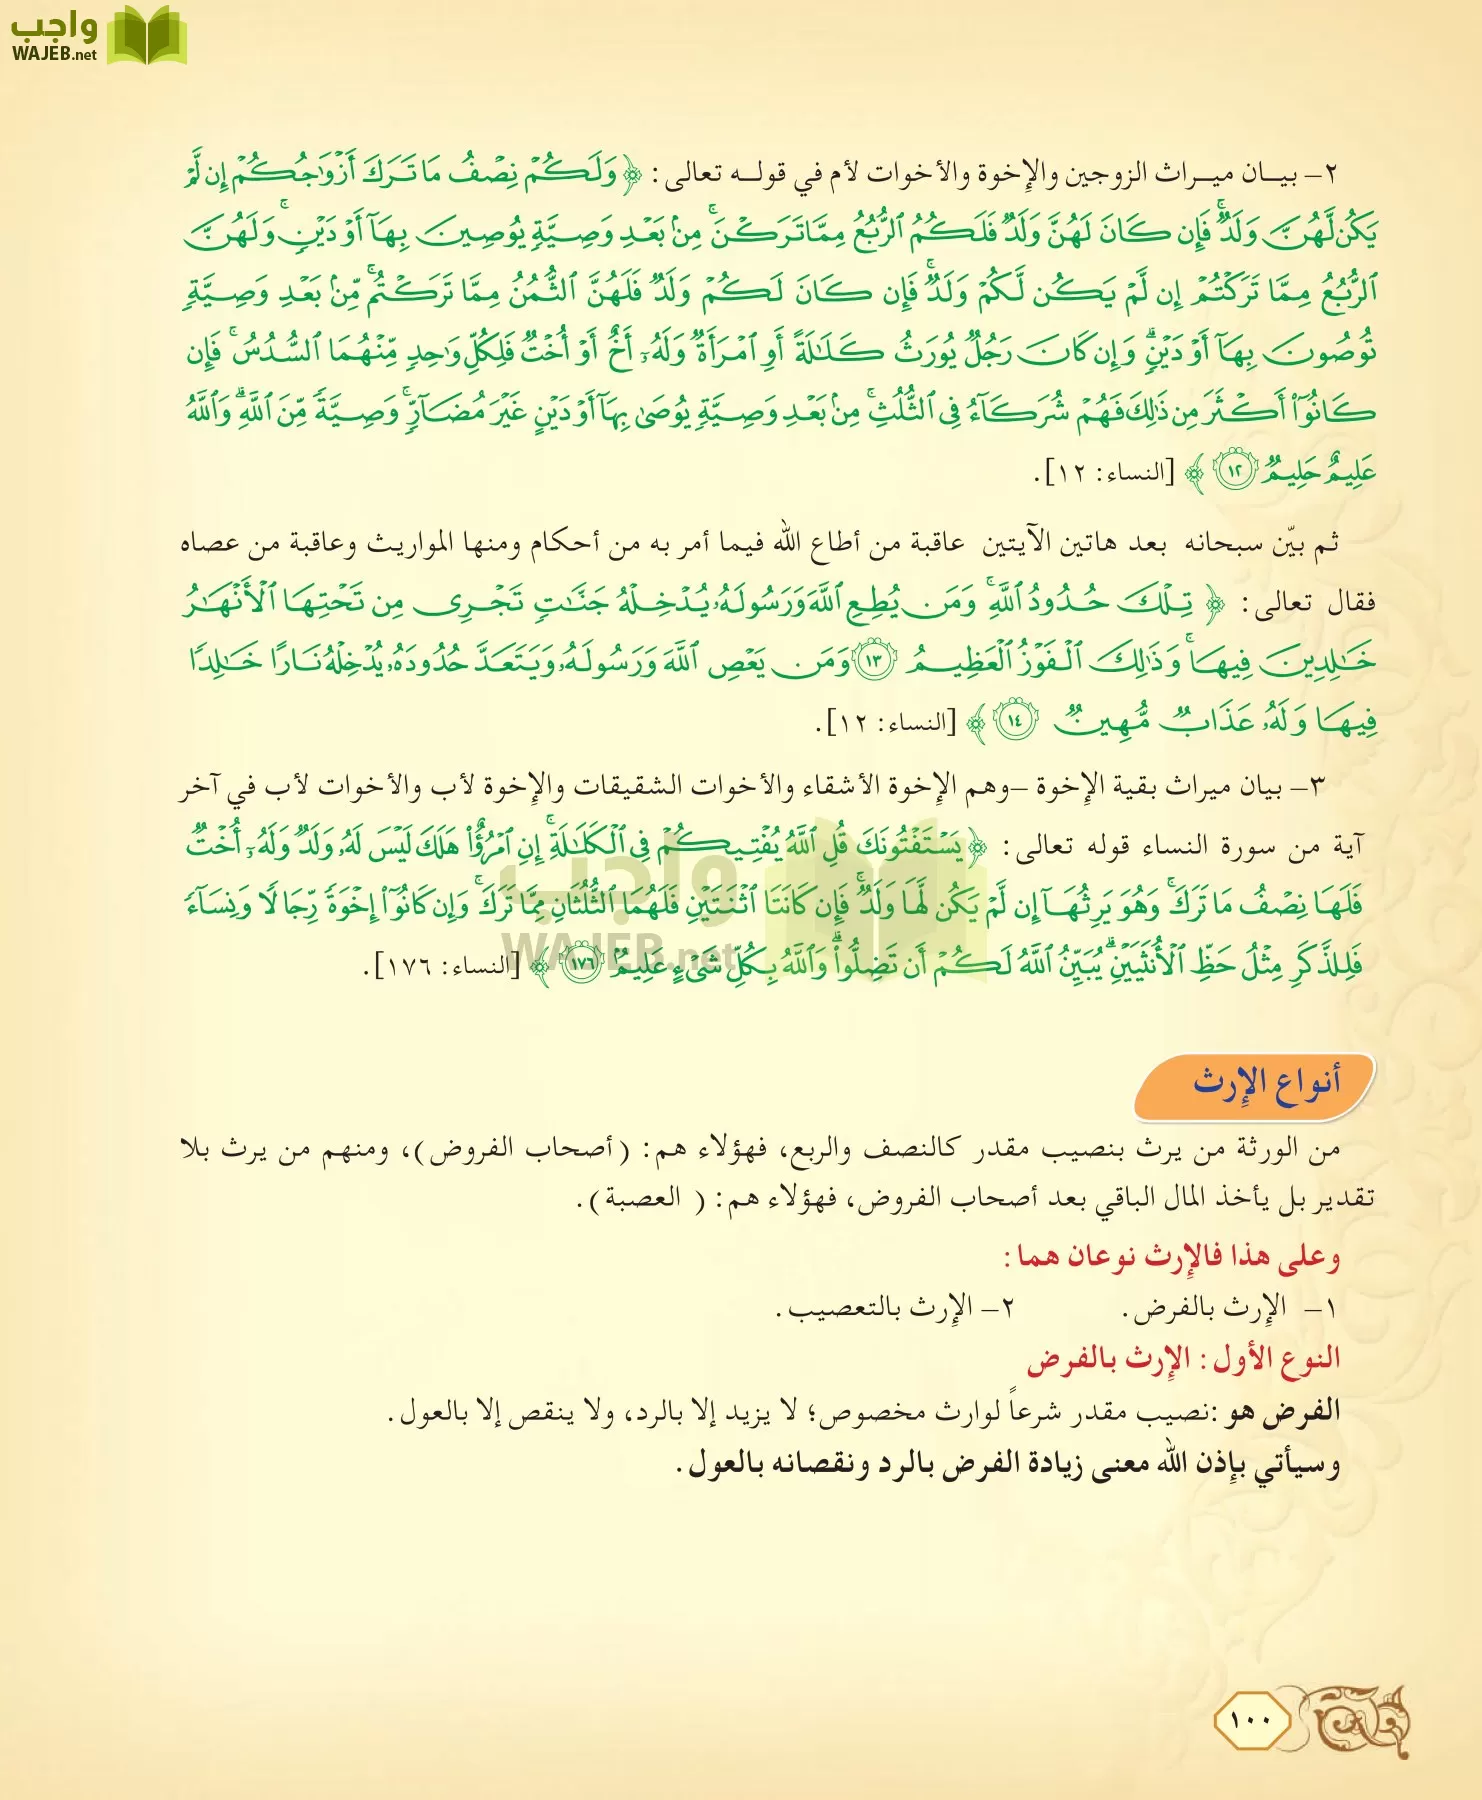 واجب
WAJEB.net
٢– بيـان ميـراث الزوجين والإخوة والأخوات لأم في قولـه تعالى: ﴿ وَلَكُمْ نِصْفُ مَا تَرَكَ أَزْوَٰجُكُمْ إِن لَّمْ
يَكُن لَّهُنَّ وَلَدٌ ۚ فَإِن كَانَ لَهُنَّ وَلَدٌ فَلَكُمُ ٱلرُّبُعُ مِمَّا تَرَكْنَ ۚ مِنۢ بَعْدِ وَصِيَّةٍ يُوصِينَ بِهَآ أَوْ دَيْنٍ ۚ وَلَهُنَّ
ٱلرُّبُعُ مِمَّا تَرَكْتُمْ إِن لَّمْ يَكُن لَّكُمْ وَلَدٌ ۚ فَإِن كَانَ لَكُمْ وَلَدٌ فَلَهُنَّ ٱلثُّمُنُ مِمَّا تَرَكْتُم ۚ مِّنۢ بَعْدِ وَصِيَّةٍ
تُوصُونَ بِهَآ أَوْ دَيْنٍ ۗ وَإِن كَانَ رَجُلٌ يُورَثُ كَلَـٰلَةً أَوِ ٱمْرَأَةٌ وَلَهُۥٓ أَخٌ أَوْ أُخْتٌ فَلِكُلِّ وَٰحِدٍ مِّنْهُمَا ٱلسُّدُسُ ۚ فَإِن
كَانُوٓا۟ أَكْثَرَ مِن ذَٰلِكَ فَهُمْ شُرَكَآءُ فِى ٱلثُّلُثِ ۚ مِنۢ بَعْدِ وَصِيَّةٍ يُوصَىٰ بِهَآ أَوْ دَيْنٍ غَيْرَ مُضَآرٍّ ۚ وَصِيَّةً مِّنَ ٱللَّهِ ۗ وَٱللَّهُ
عَلِيمٌ حَلِيمٌ ١٢ ﴾ [النساء: ١٢].
ثم بيّن سبحانه بعد هاتين الآيتين عاقبة من أطاع الله فيما أمر به من أحكام ومنها المواريث وعاقبة من عصاه
فقال تعالى: ﴿ تِلْكَ حُدُودُ ٱللَّهِ ۚ وَمَن يُطِعِ ٱللَّهَ وَرَسُولَهُۥ يُدْخِلْهُ جَنَّـٰتٍ تَجْرِى مِن تَحْتِهَا ٱلْأَنْهَـٰرُ
خَـٰلِدِينَ فِيهَا ۚ وَذَٰلِكَ ٱلْفَوْزُ ٱلْعَظِيمُ ١٣ وَمَن يَعْصِ ٱللَّهَ وَرَسُولَهُۥ وَيَتَعَدَّ حُدُودَهُۥ يُدْخِلْهُ نَارًا خَـٰلِدًا
فِيهَا وَلَهُۥ عَذَابٌ مُّهِينٌ ١٤ ﴾ [النساء: ١٢].
٣– بيان ميراث بقية الإخوة –وهم الإخوة الأشقاء والأخوات الشقيقات والإخوة لأب والأخوات لأب في آخر
آية من سورة النساء قوله تعالى: ﴿ يَسْتَفْتُونَكَ قُلِ ٱللَّهُ يُفْتِيكُمْ فِى ٱلْكَلَـٰلَةِ ۚ إِنِ ٱمْرُؤٌا۟ هَلَكَ لَيْسَ لَهُۥ وَلَدٌ وَلَهُۥٓ أُخْتٌ
فَلَهَا نِصْفُ مَا تَرَكَ ۚ وَهُوَ يَرِثُهَآ إِن لَّمْ يَكُن لَّهَا وَلَدٌ ۚ فَإِن كَانَتَا ٱثْنَتَيْنِ فَلَهُمَا ٱلثُّلُثَانِ مِمَّا تَرَكَ ۚ وَإِن كَانُوٓا۟ إِخْوَةً رِّجَالًا وَنِسَآءً
فَلِلذَّكَرِ مِثْلُ حَظِّ ٱلْأُنثَيَيْنِ ۗ يُبَيِّنُ ٱللَّهُ لَكُمْ أَن تَضِلُّوا۟ ۗ وَٱللَّهُ بِكُلِّ شَىْءٍ عَلِيمٌۢ ١٧٦ ﴾ [النساء: ١٧٦].
واجب
WAJEB.net
أنواع الإرث
من الورثة من يرث بنصيب مقدر كالنصف والربع، فهؤلاء هم: (أصحاب الفروض)، ومنهم من يرث بلا
تقدير بل يأخذ المال الباقي بعد أصحاب الفروض، فهؤلاء هم: ( العصبة).
وعلى هذا فالإرث نوعان هما:
١– الإرث بالفرض. ٢– الإرث بالتعصيب.
النوع الأول: الإرث بالفرض
الفرض هو :نصيب مقدر شرعاً لوارث مخصوص؛ لا يزيد إلا بالرد، ولا ينقص إلا بالعول.
وسيأتي بإذن الله معنى زيادة الفرض بالرد ونقصانه بالعول.
١٠٠